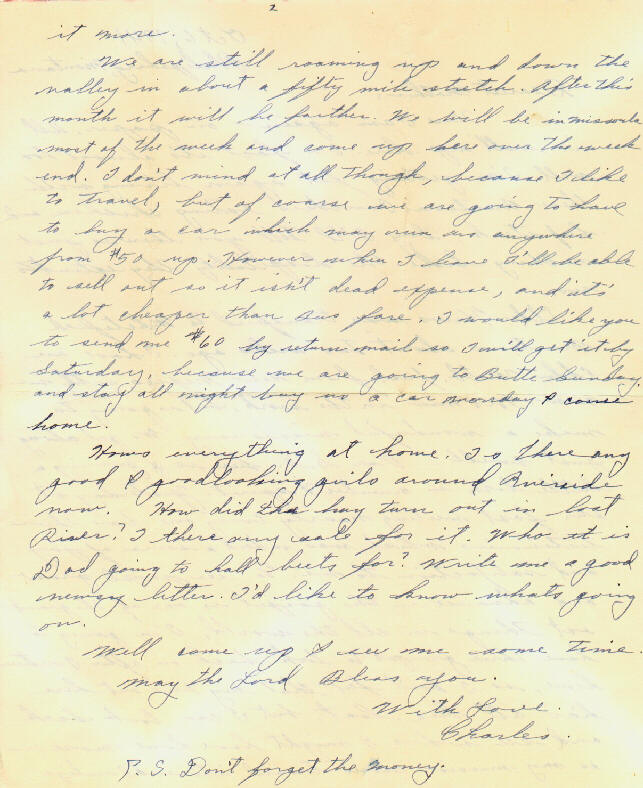 2
it more.
We are still roaming up and down the
valley in about a fifty mile stretch. After this
month it will be farther. We will be in missoula
most of the week and come up here over the week
end. I don't mind at all though, because I like
to travel, but of coarse we are going to have
to buy a car which may run us anywhere
from $50 up. However when I leave I'll be able
to sell out so it isn't dead expense, and it's
a lot cheaper than bus fare. I would like you
to send me $60 by return mail so I will get it by
Saturday, because we are going to Butte Sunday,
and stay all night buy us a car Monday & come
home.
Hows everything at home. Is there any
good & goodlooking girls around Riverside
now. How did the hay turn out in lost
River? I there any sale for it. Who is
Dad going to hall beets for? Write me a good
newsy letter. I'd like to know whats going
on.
Well come up & see me some time.
May the Lord Bless you.
With Love.
Charles.
P. S. Don't forget the money.